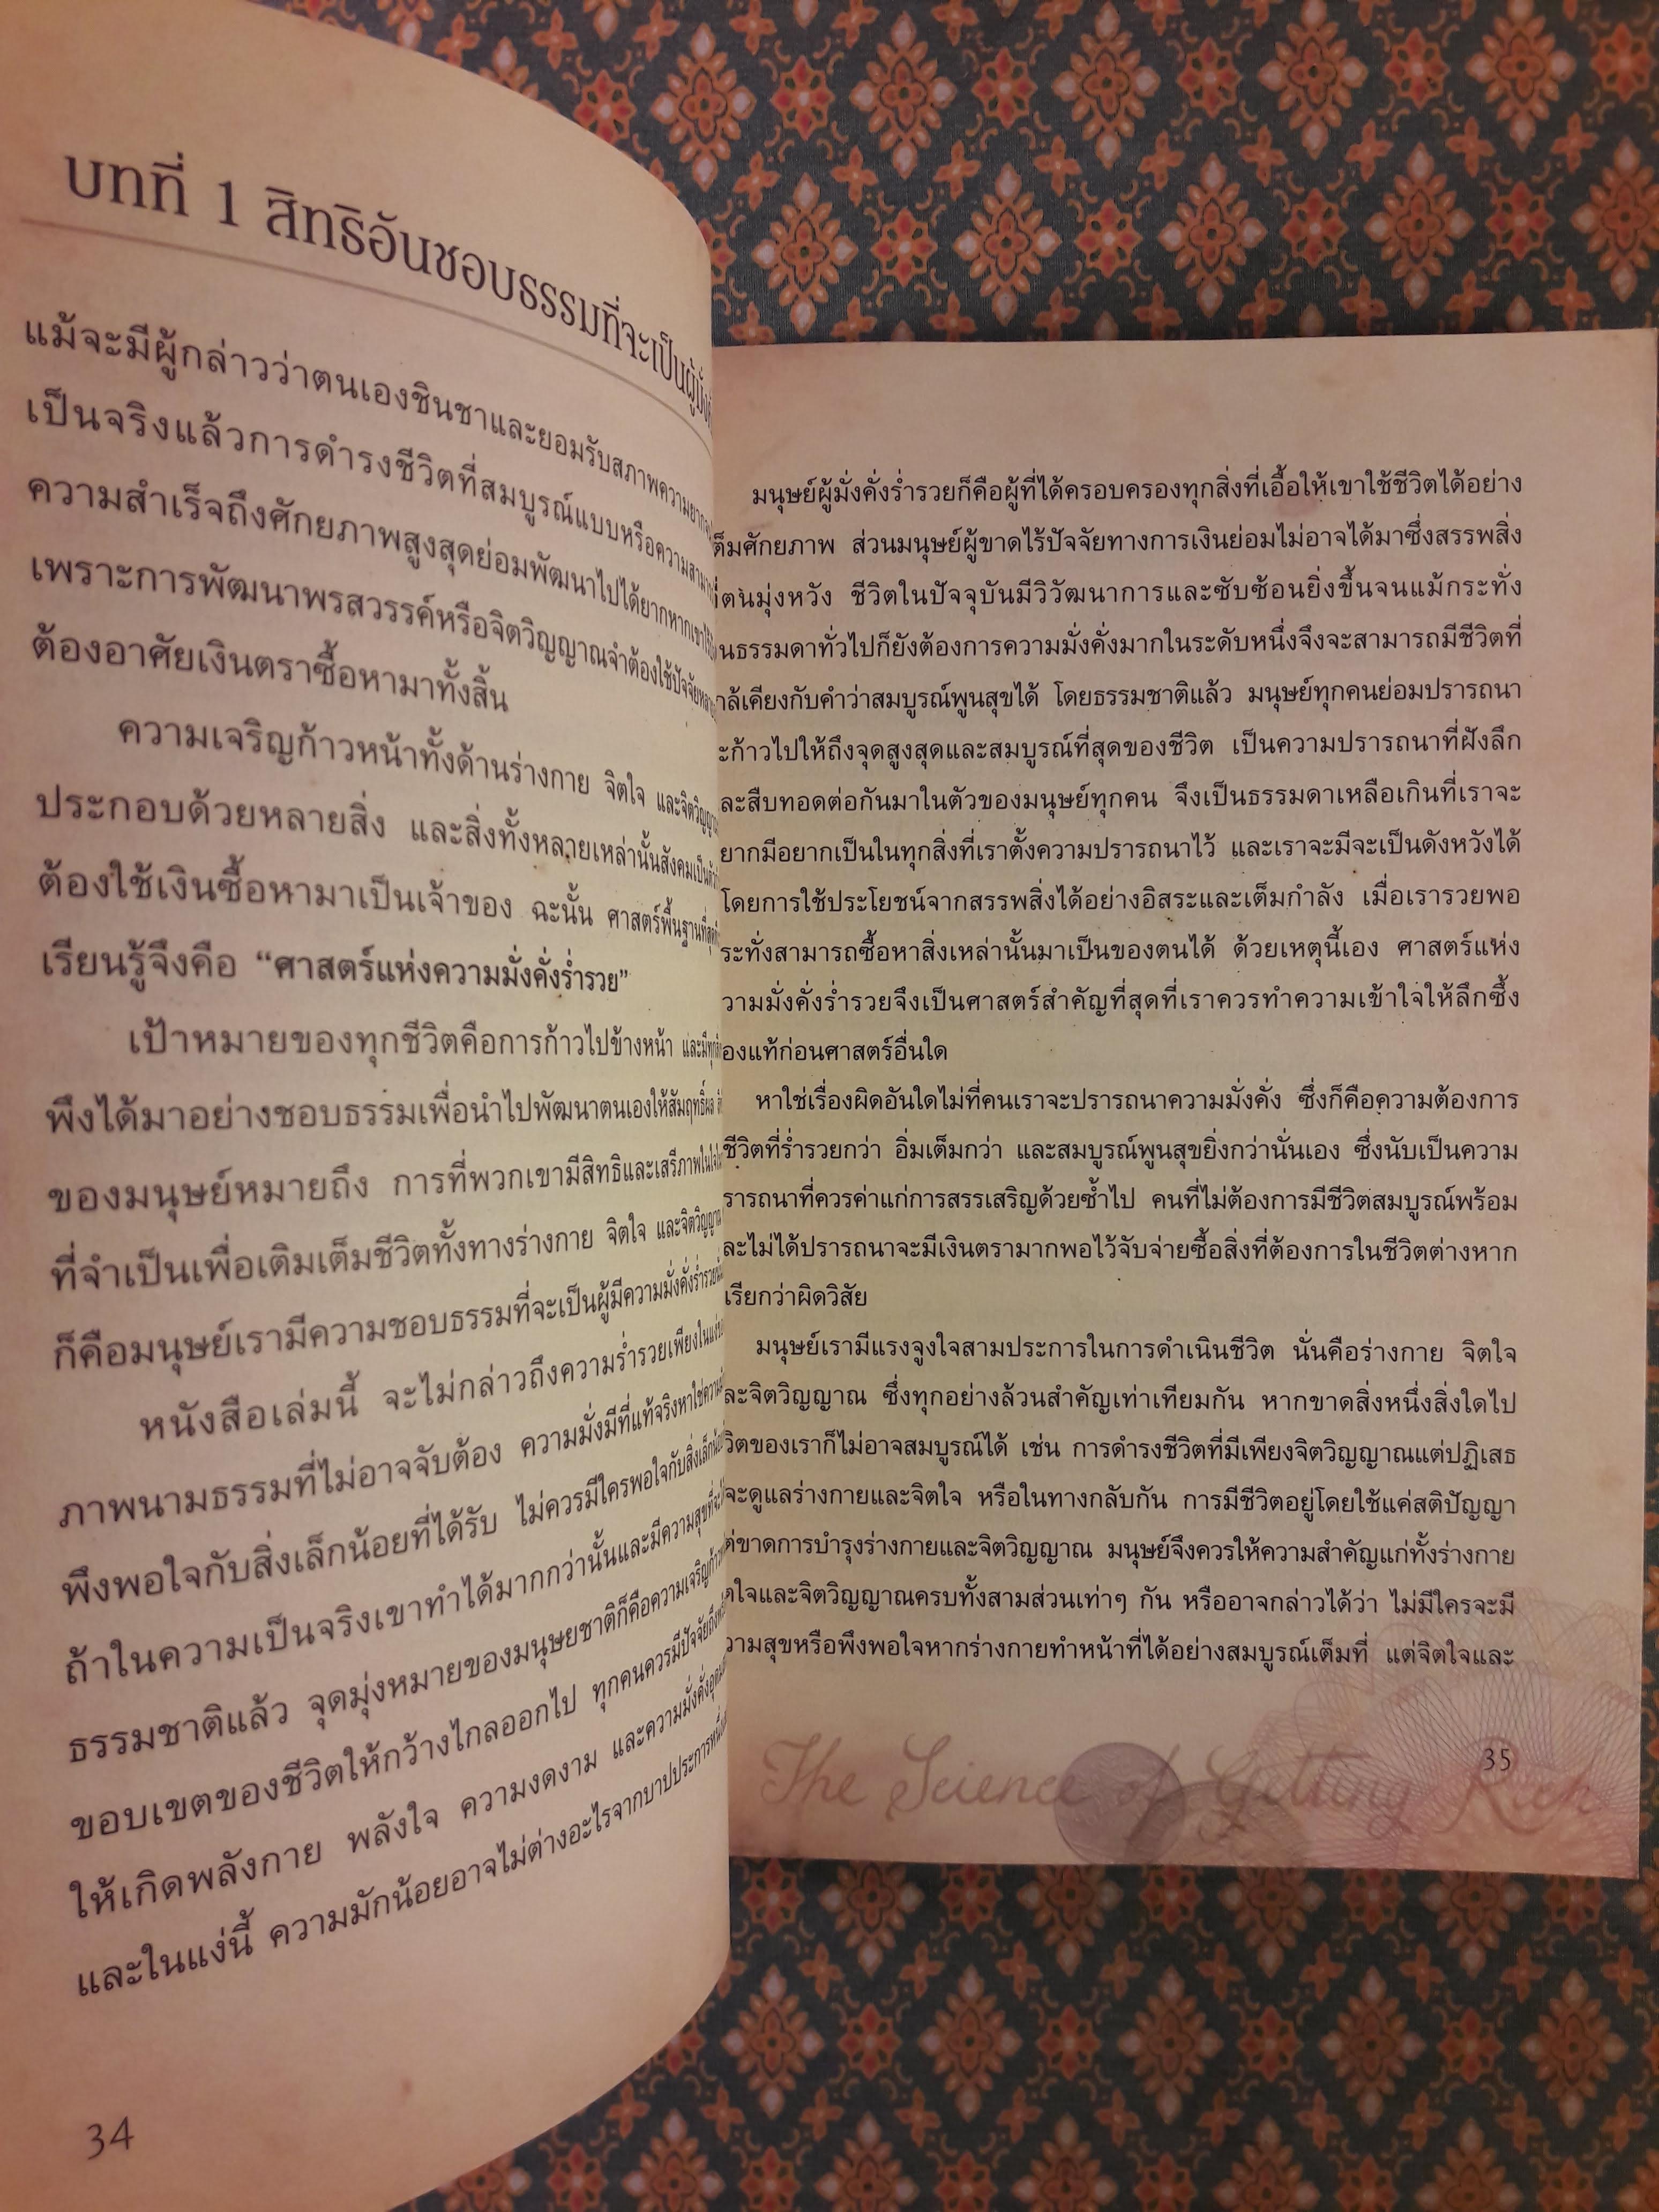 บทที่ 1 สิทธิอันชอบธรรมที่จะเป็นผู้มั่งคั่ง
แม้จะมีผู้กล่าวว่าตนเองชินชาและยอมรับสภาพความยากจน
เป็นจริงแล้วการดำรงชีวิตที่สมบูรณ์แบบหรือความสามารถ
ความสำเร็จถึงศักยภาพสูงสุดย่อมพัฒนาไปได้ยากหากเขาไร้
เพราะการพัฒนาพรสวรรค์หรือจิตวิญญาณจำต้องใช้ปัจจัย
ต้องอาศัยเงินตราซื้อหามาทั้งสิ้น
ความเจริญก้าวหน้าทั้งด้านร่างกาย จิตใจ และจิตวิญญาณ
ประกอบด้วยหลายสิ่ง และสิ่งทั้งหลายเหล่านั้นสังคมเป็น
ต้องใช้เงินซื้อหามาเป็นเจ้าของ ฉะนั้น ศาสตร์พื้นฐานที่สุด
เรียนรู้จึงคือ “ศาสตร์แห่งความมั่งคั่งร่ำรวย”
เป้าหมายของทุกชีวิตคือการก้าวไปข้างหน้า และมี
พึงได้มาอย่างชอบธรรมเพื่อนำไปพัฒนาตนเองให้สัมฤทธิ์ผล
ของมนุษย์หมายถึง การที่พวกเขามีสิทธิและเสรีภาพใน
ที่จำเป็นเพื่อเติมเต็มชีวิตทั้งทางร่างกาย จิตใจ และจิตวิญญาณ
ก็คือมนุษย์เรามีความชอบธรรมที่จะเป็นผู้มีความมั่งคั่งร่ำรวย
หนังสือเล่มนี้ จะไม่กล่าวถึงความร่ำรวยเพียงใน
ภาพนามธรรมที่ไม่อาจจับต้อง ความมั่งมีที่แท้จริงหาใช่ความ
พึงพอใจกับสิ่งเล็กน้อยที่ได้รับ ไม่ควรมีใครพอใจกับสิ่งเล็กน้อย
ถ้าในความเป็นจริงเขาทำได้มากกว่านั้นและมีความสุขที่จะ
ธรรมชาติแล้ว จุดมุ่งหมายของมนุษยชาติก็คือความเจริญก้าว
ขอบเขตของชีวิตให้กว้างไกลออกไป ทุกคนควรมีปัจจัย
ให้เกิดพลังกาย พลังใจ ความงดงาม และความมั่งคั่ง
และในแง่นี้ ความมักน้อยอาจไม่ต่างอะไรจากบาปประการหนึ่ง
34
มนุษย์ผู้มั่งคั่งร่ำรวยก็คือผู้ที่ได้ครอบครองทุกสิ่งที่เอื้อให้เขาใช้ชีวิตได้อย่าง
ต็มศักยภาพ ส่วนมนุษย์ผู้ขาดไร้ปัจจัยทางการเงินย่อมไม่อาจได้มาซึ่งสรรพสิ่ง
ตนมุ่งหวัง ชีวิตในปัจจุบันมีวิวัฒนาการและซับซ้อนยิ่งขึ้นจนแม้กระทั่ง
นธรรมดาทั่วไปก็ยังต้องการความมั่งคั่งมากในระดับหนึ่งจึงจะสามารถมีชีวิตที่
กล้เคียงกับคำว่าสมบูรณ์พูนสุขได้ โดยธรรมชาติแล้ว มนุษย์ทุกคนย่อมปรารถนา
ะก้าวไปให้ถึงจุดสูงสุดและสมบูรณ์ที่สุดของชีวิต เป็นความปรารถนาที่ฝังลึก
ละสืบทอดต่อกันมาในตัวของมนุษย์ทุกคน จึงเป็นธรรมดาเหลือเกินที่เราจะ
ยากมีอยากเป็นในทุกสิ่งที่เราตั้งความปรารถนาไว้ และเราจะมีจะเป็นดังหวังได้
โดยการใช้ประโยชน์จากสรรพสิ่งได้อย่างอิสระและเต็มกำลัง เมื่อเรารวยพอ
ระทั่งสามารถซื้อหาสิ่งเหล่านั้นมาเป็นของตนได้ ด้วยเหตุนี้เอง ศาสตร์แห่ง
วามมั่งคั่งร่ำรวยจึงเป็นศาสตร์สำคัญที่สุดที่เราควรทำความเข้าใจให้ลึกซึ้ง
องแท้ก่อนศาสตร์อื่นใด
หาใช่เรื่องผิดอันใดไม่ที่คนเราจะปรารถนาความมั่งคั่ง ซึ่งก็คือความต้องการ
ชีวิตที่ร่ำรวยกว่า อิ่มเต็มกว่า และสมบูรณ์พูนสุขยิ่งกว่านั่นเอง ซึ่งนับเป็นความ
รารถนาที่ควรค่าแก่การสรรเสริญด้วยซ้ำไป คนที่ไม่ต้องการมีชีวิตสมบูรณ์พร้อม
ละไม่ได้ปรารถนาจะมีเงินตรามากพอไว้จับจ่ายซื้อสิ่งที่ต้องการในชีวิตต่างหาก
เรียกว่าผิดวิสัย
มนุษย์เรามีแรงจูงใจสามประการในการดำเนินชีวิต นั่นคือร่างกาย จิตใจ
ละจิตวิญญาณ ซึ่งทุกอย่างล้วนสำคัญเท่าเทียมกัน หากขาดสิ่งหนึ่งสิ่งใดไป
วิตของเราก็ไม่อาจสมบูรณ์ได้ เช่น การดำรงชีวิตที่มีเพียงจิตวิญญาณแต่ปฏิเสธ
จะดูแลร่างกายและจิตใจ หรือในทางกลับกัน การมีชีวิตอยู่โดยใช้แค่สติปัญญา
ต่ขาดการบำรุงร่างกายและจิตวิญญาณ มนุษย์จึงควรให้ความสำคัญแก่ทั้งร่างกาย
ตใจและจิตวิญญาณครบทั้งสามส่วนเท่าๆ กัน หรืออาจกล่าวได้ว่า ไม่มีใครจะมี
วามสุขหรือพึงพอใจหากร่างกายทำหน้าที่ได้อย่างสมบูรณ์เต็มที่ แต่จิตใจและ
35
The Science of Getting Rich